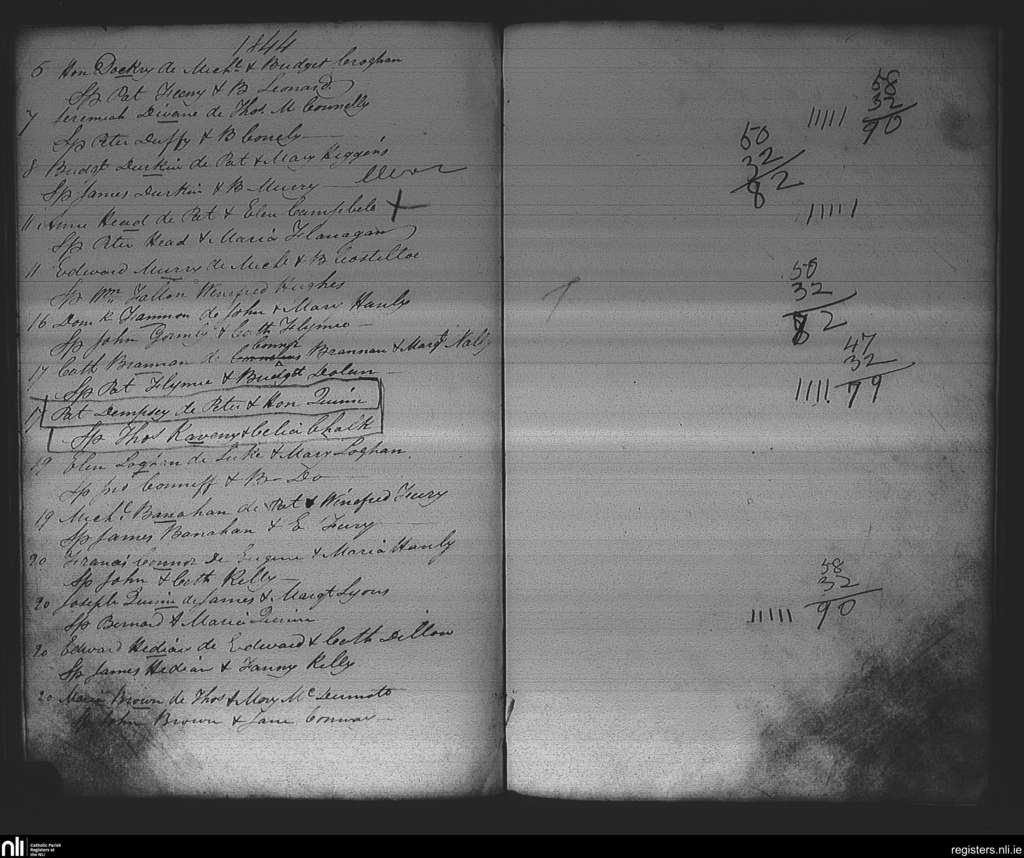 1844
5 Hon Dockry de Michl & Budget Croghan
Sp Pat Feeny & B Leonard
7 Jeremiah Divane de Thos. M Connelly
Sp Peter Duffy & B Conely
8 Budgt Durkin de Pat & Mary Higgins
Sp James Durkin & B Murry
11 Anne Head de Pat & Elen Campbele
Sp Peter Head & Maria Flanagan
11 Edward Murry de Michl & B Costelloe
Sp Wm Fallon Winefred Hughes
16 Domk Gammon de John & Mary Hanly
Sp John & Cath Flynn
17 Cath Brannan de Connr Brannan & Margt Nally
Sp Pat Flynn & Budgt Dolan
17 Pat Dempsey de Peter & Hon Quinn
Sp Thos Kaveny & Celia Chalk
19 Elen Loghan de Luke & Mary Loghan.
Sp Jno Conniff & B Do
19 Michl. Banahan de Pat & Winefred Feury
Sp James Banahan & E Feury
20 Francis Connor De Eugene & Maria Hanly
Sp John & Cath Kelly
20 Joseph Quinn de James & Margt Lyons
Sp Bernard & Maria Quinn
20 Edward Hedian de Edward & Cath Dillon
Sp James Hedian & Fanny Kelly
20 Maria Brown de Thos & Mary McDermoto
Sp John Brown & Jane Conway
58
32
90
50
32
82
50
32
82
47
32
79
58
32
90
nli
Catholic Parish
Registers at
the NLI
registers.nli.ie